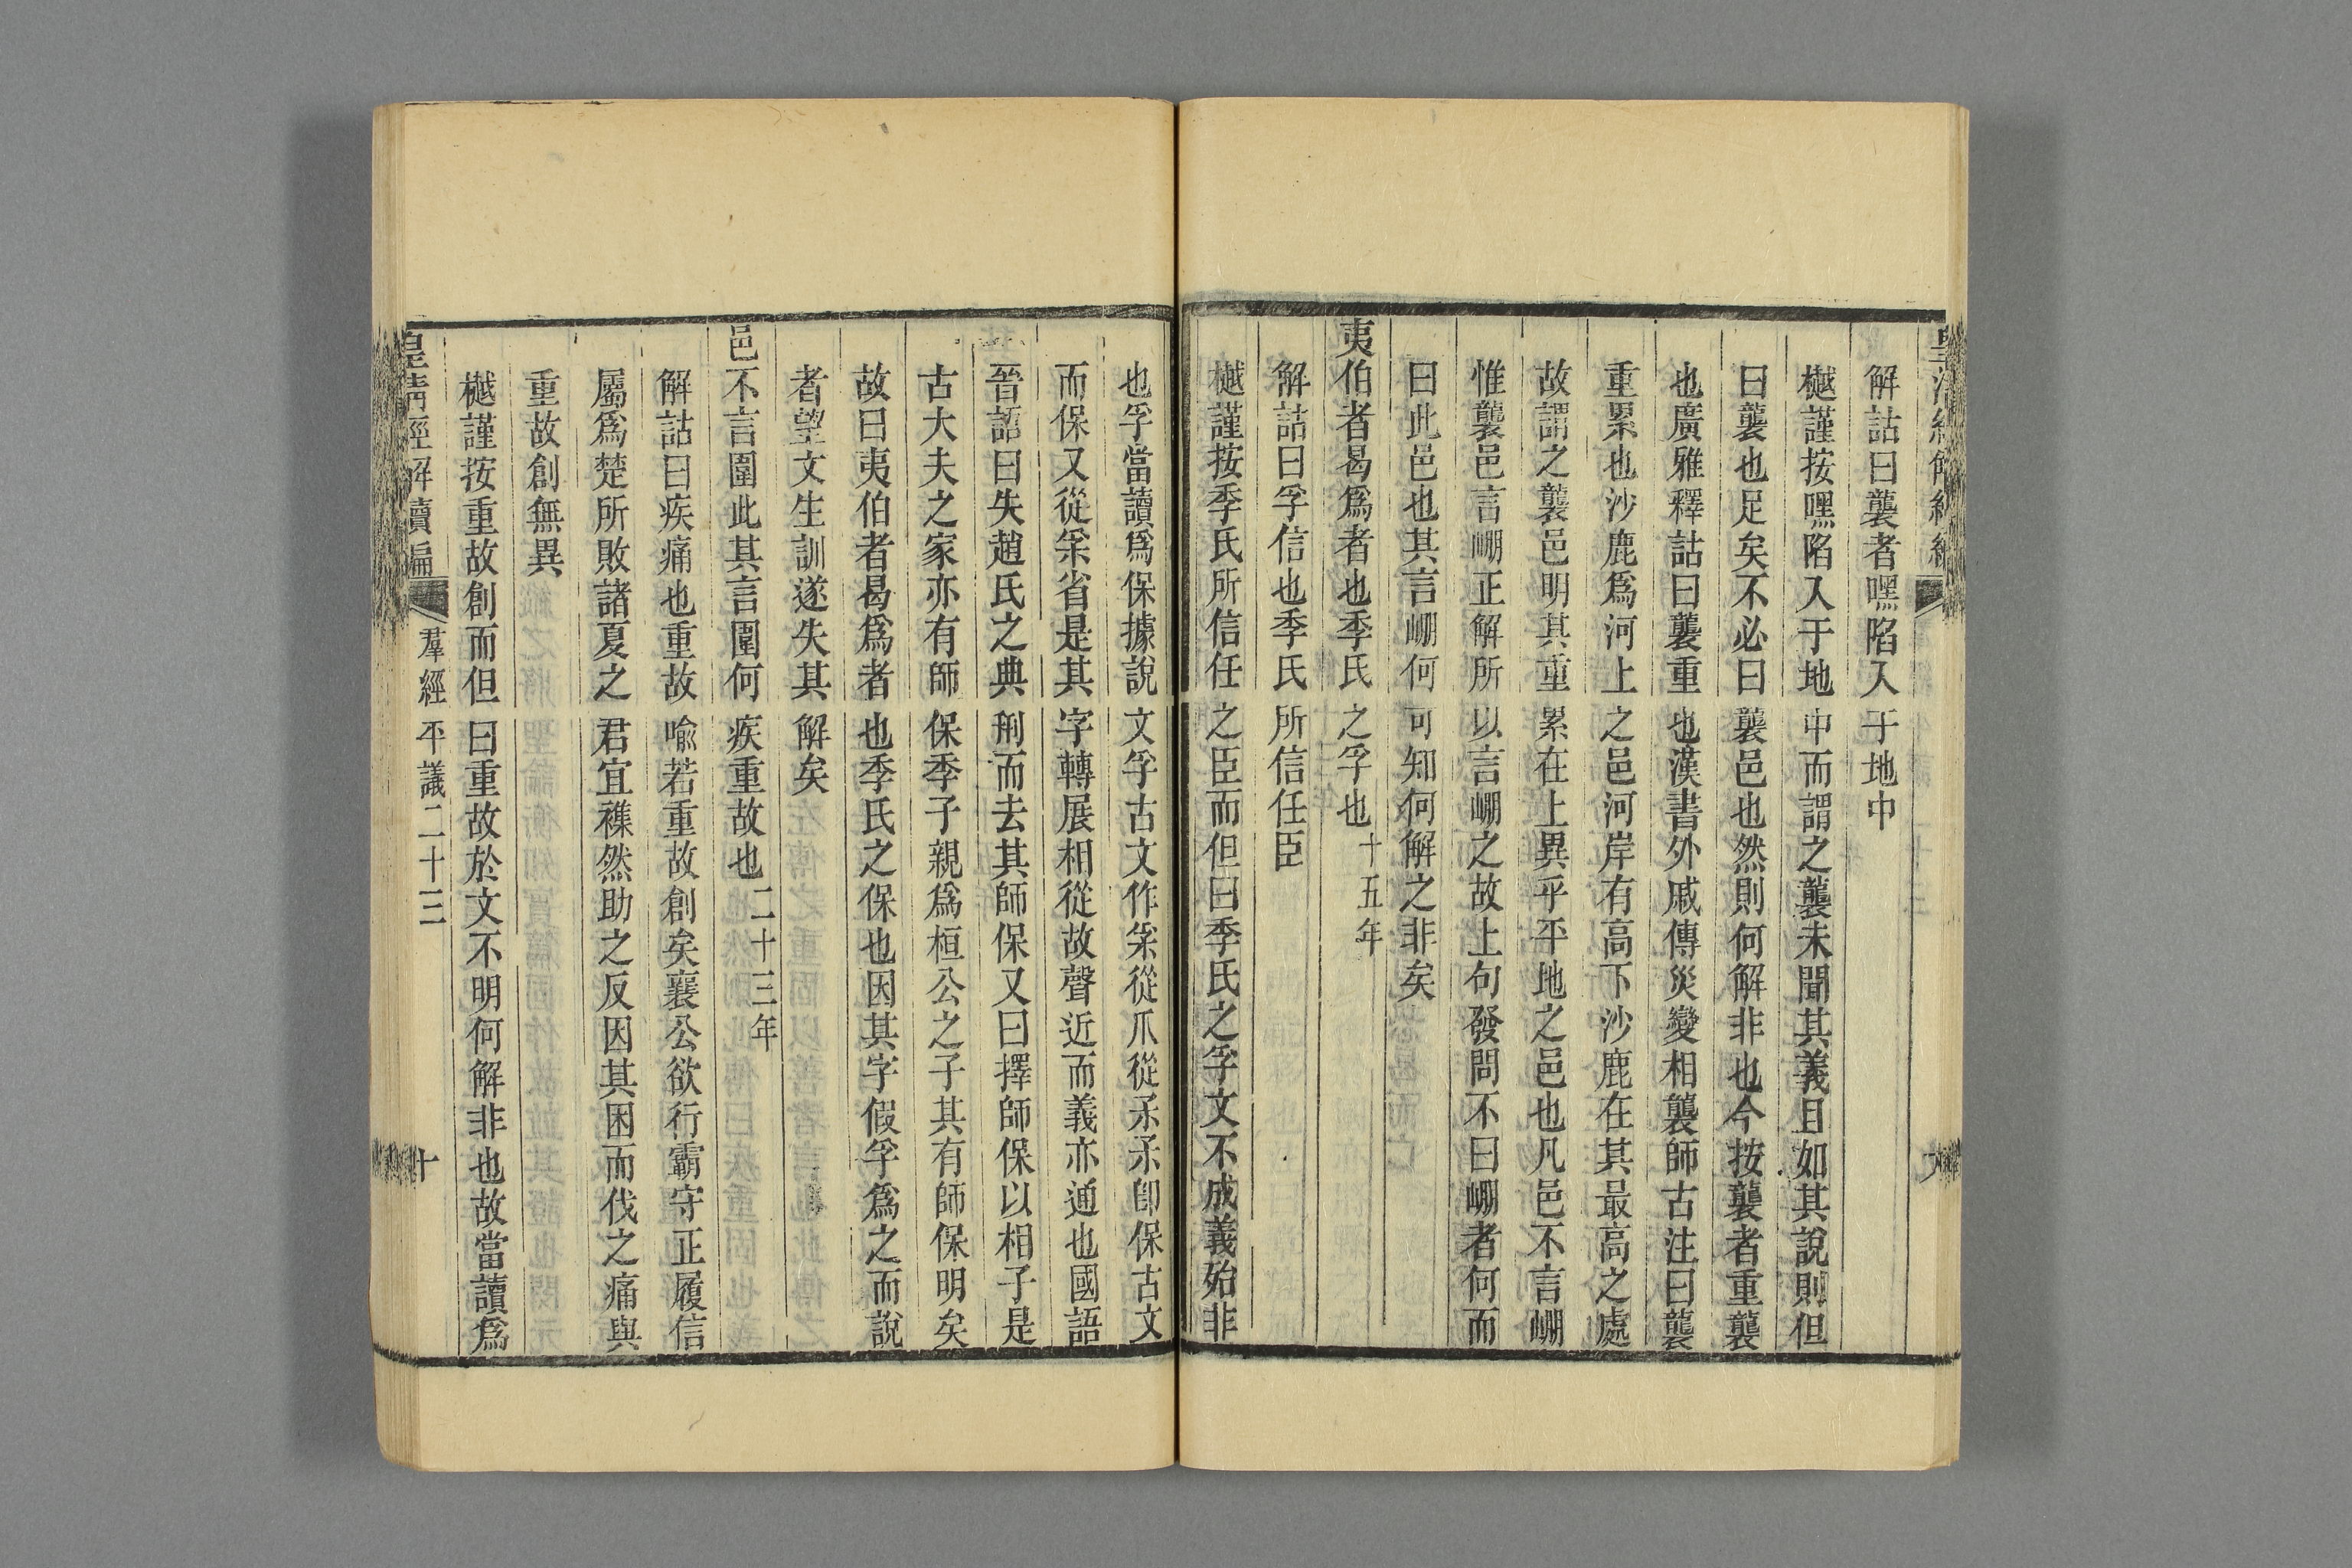 解詁曰襲者嘿陷入于地中
樾謹按嘿陷入于地中而謂之襲未聞其義且如其說則但
曰襲也足矣不必曰襲邑也然則何解非也今按襲者重襲
也廣雅釋詁曰襲重也漢書外戚傳災變相襲師古注曰襲
重累也沙鹿爲河上之邑河岸有高下沙鹿在其最高之處
故謂之襲邑明其重累在上異乎平地之邑也凡邑不言崩
惟襲邑言崩正解所以言崩之故上句發問不曰崩者何而
曰此邑也其言崩何可知何解之非矣
夷伯者曷爲者也季氏之孚也十五年
解詁曰孚信也季氏所信任臣
樾謹按季氏所信任之臣而但曰季氏之孚文不成義殆非
也孚當讀爲保據說文孚古文作𤔍從爪從𤓽𤓽卽保古文
而保又從𤔍省是其字轉展相從故聲近而義亦通也國語
晉語曰失趙氏之典刑而去其師保又曰擇師保以相子是
古大夫之家亦有師保季子親爲桓公之子其有師保明矣
故曰夷伯者曷爲者也季氏之保也因其字假孚爲之而說
者望文生訓遂失其解矣
邑不言圍此其言圍何疾重故也二十三年
解詁曰疾痛也重故喻若重故創矣襄公欲行霸守正履信
屬爲楚所敗諸夏之君宜襍然助之反因其困而伐之痛與
重故創無異
樾謹按重故創而但曰重故於文不明何解非也故當讀爲
皇清經解續編 羣經平議二十三 十